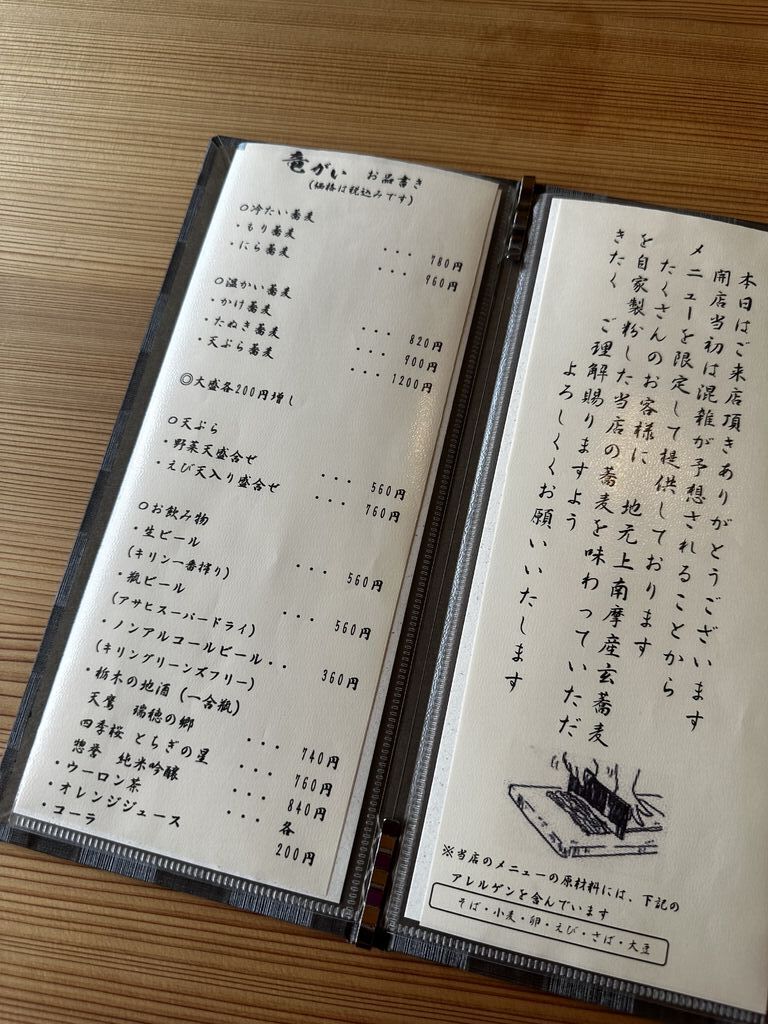 竜がい お品書き
(価格は税込みです)
○冷たい蕎麦
・もり蕎麦 ・・・ 780円
・にら蕎麦 ・・・ 960円
○温かい蕎麦
・かけ蕎麦 ・・・ 820円
・たぬき蕎麦 ・・・ 900円
・天ぷら蕎麦 ・・・ 1200円
◎大盛各200円増し
○天ぷら
・野菜天盛合せ ・・・ 560円
・えび天入り盛合せ ・・・ 760円
○お飲み物
・生ビール ・・・ 560円
(キリン一番搾り)
・瓶ビール ・・・ 560円
(アサヒスーパードライ)
・ノンアルコールビール・・ 360円
(キリングリーンズフリー)
・栃木の地酒(一合瓶)
天鷹 瑞穂の郷 ・・・ 740円
四季桜 とちぎの星 ・・・ 760円
惣誉 純米吟醸 ・・・ 840円
・ウーロン茶 各
・オレンジジュース 200円
・コーラ
本日はご来店頂きありがとうございます
開店当初は混雑が予想されることから
メニューを限定して提供しております
たくさんのお客様に 地元上南摩産玄蕎麦
を自家製粉した当店の蕎麦を味わっていただ
きたく ご理解賜りますよう
よろしくお願いいたします
※当店のメニューの原材料には、下記の
アレルゲンを含んでいます
そば・小麦・卵・えび・さば・大豆